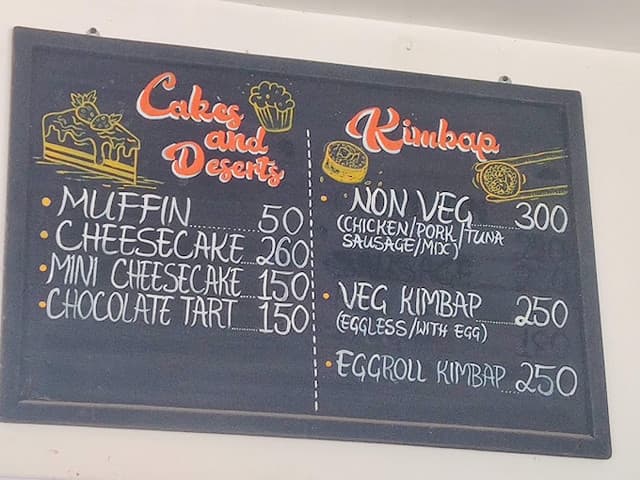 Cakes
and
Deserts
MUFFIN 50
CHEESECAKE 260
MINI CHEESECAKE 150
CHOCOLATE TART 150
Kimbap
NON VEG 300
(CHICKEN/PORK/TUNA
SAUSAGE/MIX)
VEG KIMBAP 250
(EGGLESS/WITH EGG)
EGGROLL KIMBAP 250